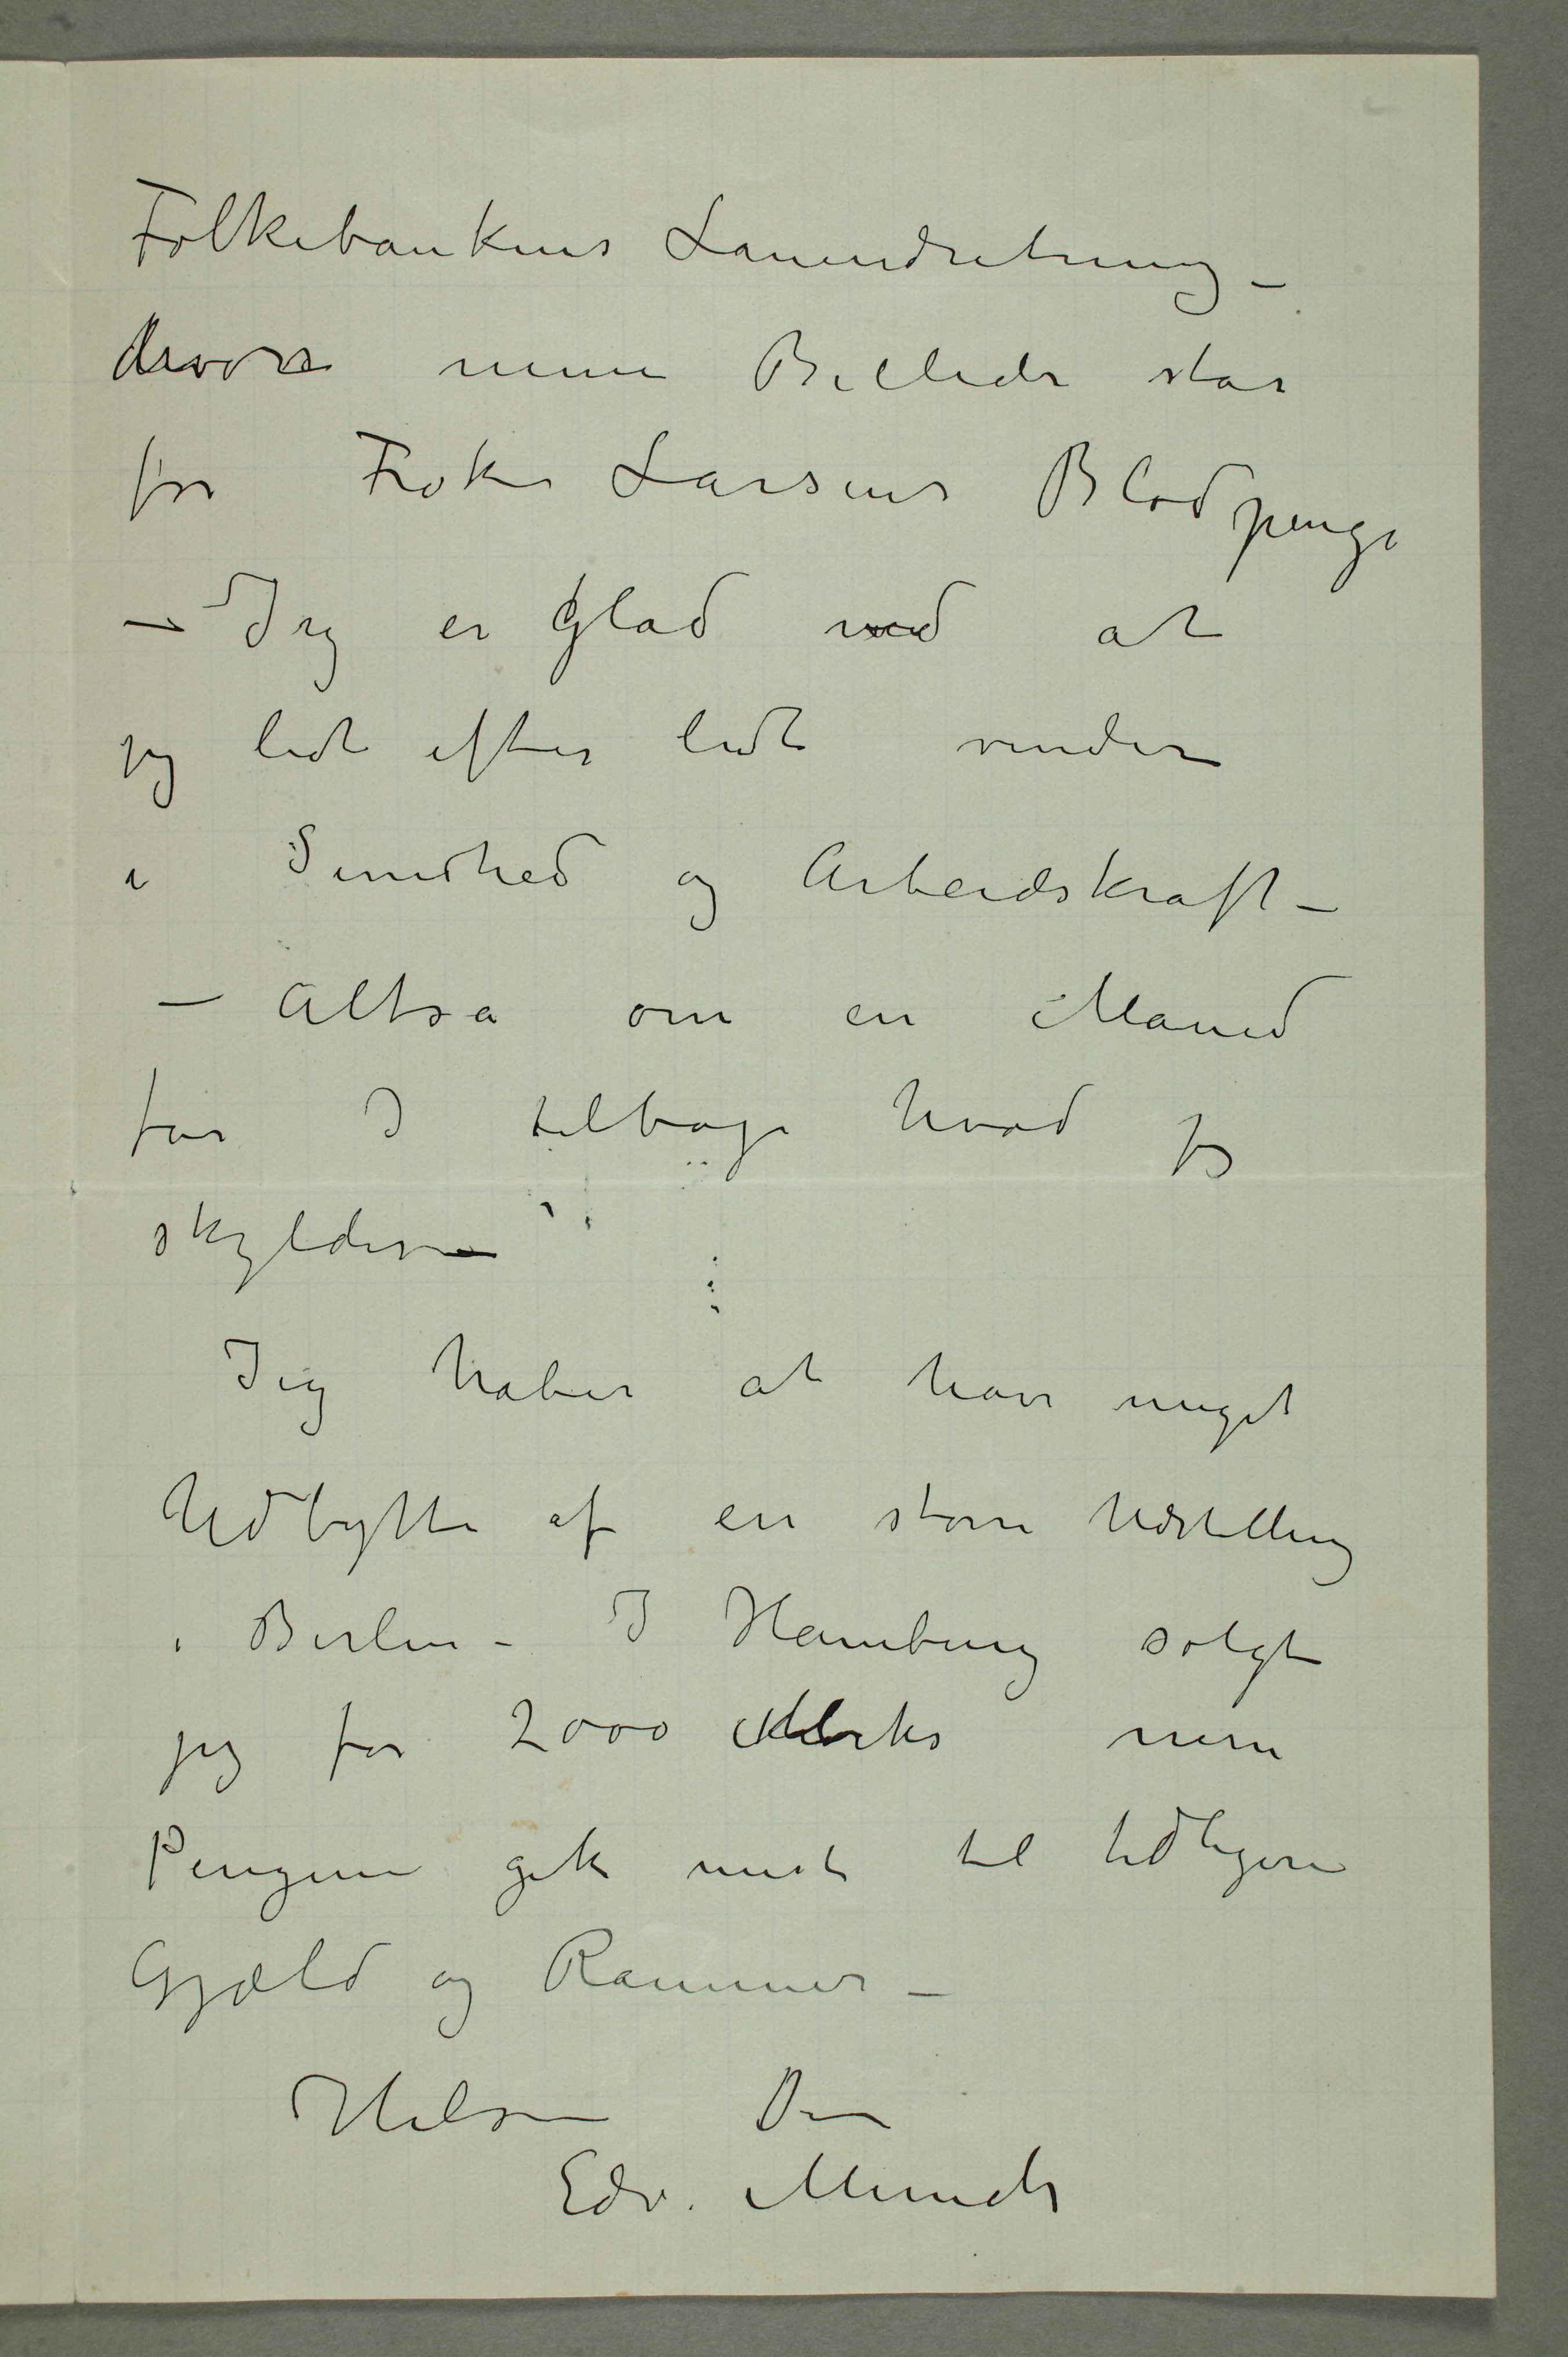 Folkebankens Laaneindretning –
hvor mine Billeder står
for Frøken Larsens Blodpenge
– Jeg er glad ved at
jeg lidt efter lidt vinder
i Sundhed og Arbeidskraft –
– Altså om en Maaned
får I tilbage hvad jeg
skylder –
Jeg håber at have meget
Udbytte af en større Udstilling
i Berlin – I Hamburg solgte
jeg for 2000 Marks men
Pengene gik mest til tidligere
Gjæld og Rammer –
Hilsen Din
Edv. Munch